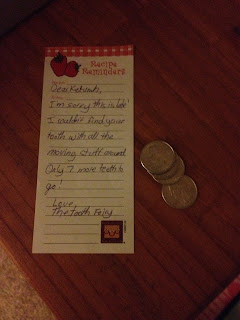 Recipe
Reminders
Dear
I'm sorry this is late!
I couldn't find your
tooth with all the
moving stuff around
Only 7 more teeth to
go!
Love,
The Tooth Fairy